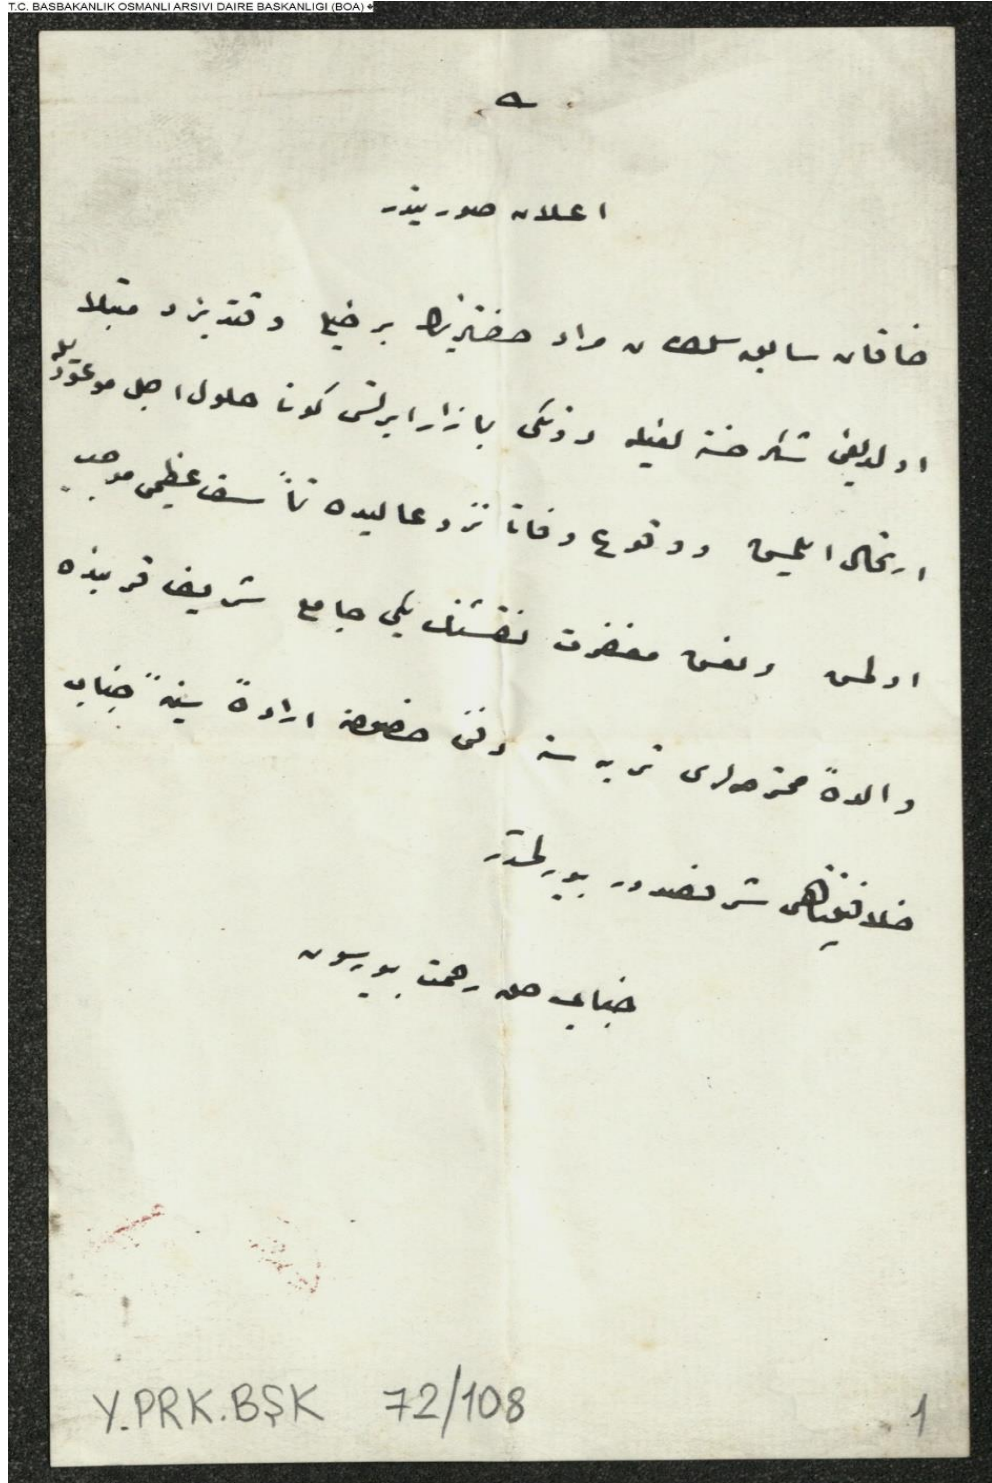 T.C. BASBAKANLIK OSMANLI ARSIVI DAIRE BASKANLIGI (BOA)
اعلان صورتيدر
خاقان سابق سلطان مراد حضرتلرينك بر خيلى وقتدنبرو مبتلا
اولديغى شكر خسته لغيله دونكى بازار ايرتسى كونى حلول اجل موعوديله
ارتحال ايلمش ووقوع وفاتى نزد عاليده تأسف عظيمى موجب
اولمش ونعش مغفرت نقشنك يكى جامع شريف قربنده
والدۀ محترمه لرى تربه سنه دفنى خصوصنه ارادۀ سنيۀ جناب
خلافتپناهى شرفصدور بيورلمشدر
جناب حق رحمت بيورسون
Y.PRK.BŞK 72/108 1